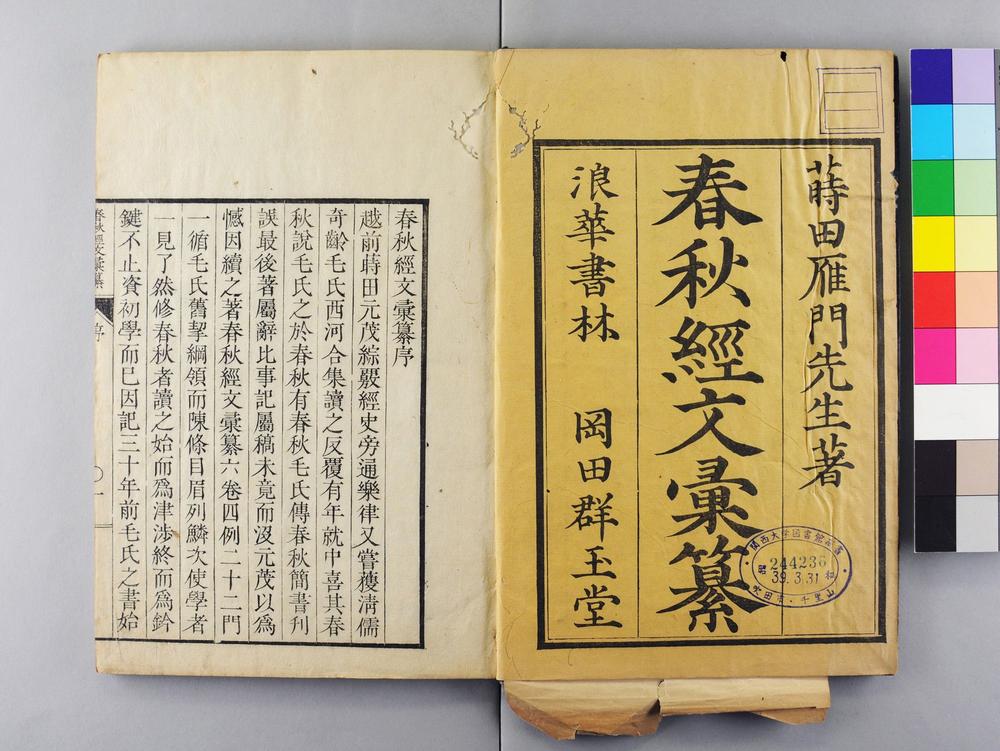 蒔田雁門先生著
春秋經文彙纂
浪華書林 岡田群玉堂
關西大學圖書館藏書
244236
昭和
39.3.31
吹田市・千里山
春秋經文彙纂序
越前蒔田元茂綜覈經史旁通樂律又嘗獲淸儒
奇齡毛氏西河合集讀之反覆有年就中喜其春
秋說毛氏之於春秋有春秋毛氏傳春秋簡書刊
誤最後著屬辭比事記屬稿未竟而沒元茂以爲
憾因續之著春秋經文彙纂六卷四例二十二門
一循毛氏舊挈綱領而陳條目眉列鱗次使學者
一見了然修春秋者讀之始而爲津涉終而爲鈐
鍵不止資初學而已因記三十年前毛氏之書始
春秋經文彙纂
序
一